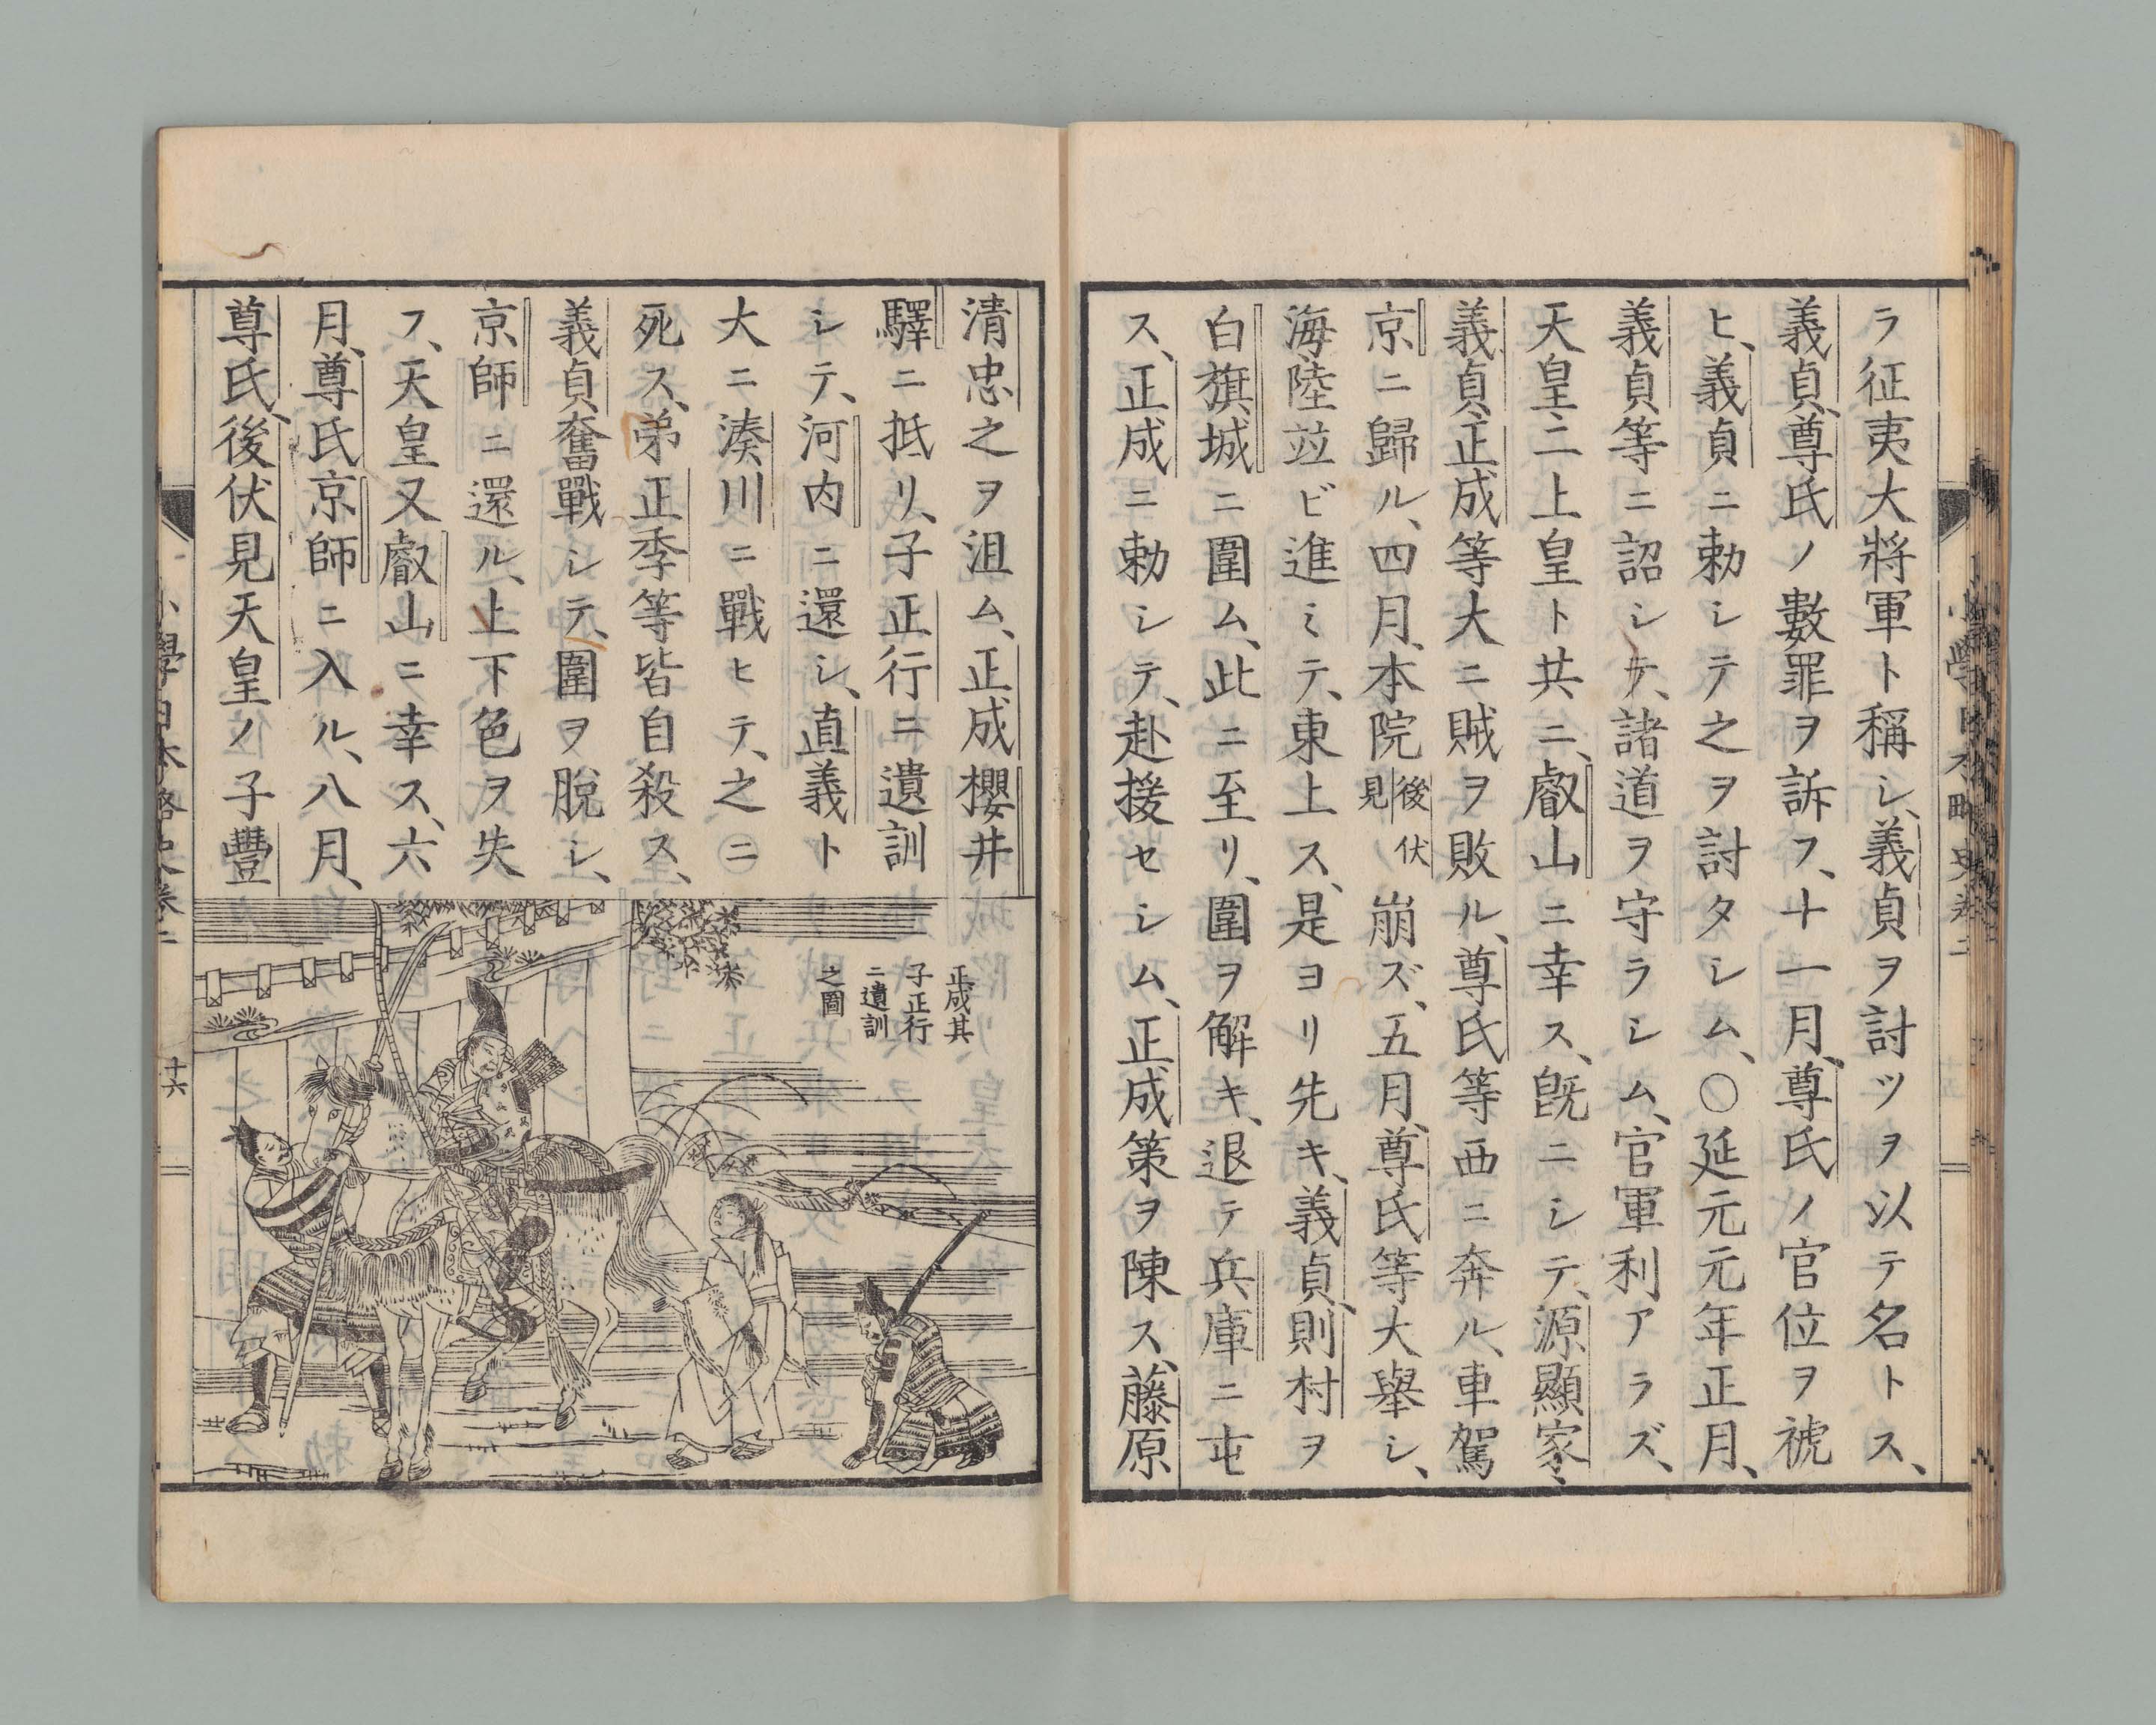 ラ征夷大將軍ト稱シ、義貞ヲ討ツヲ以テ名トス、
義貞、尊氏ノ數罪ヲ訴フ、十一月、尊氏ノ官位ヲ褫
ヒ、義貞ニ勅シテ之ヲ討タシム、○延元元年正月、
義貞等ニ詔シテ、諸道ヲ守ラシム、官軍利アラズ、
天皇二上皇ト共ニ、叡山ニ幸ス、旣ニシテ、源顯家、
義貞、正成等大ニ賊ヲ敗ル、尊氏等西ニ奔ル、車駕
京ニ歸ル、四月、本院後伏見ノ崩ズ、五月、尊氏等大擧シ、
海陸竝ビ進ミテ、東上ス、是ヨリ先キ、義貞、則村ヲ
白旗城ニ圍ム、此ニ至リ、圍ヲ解キ、退テ兵庫ニ屯
ス、正成ニ勅シテ、赴援セシム、正成策ヲ陳ス、藤原
清忠之ヲ沮ム、正成櫻井
驛ニ抵リ、子正行ニ遺訓
シテ、河内ニ還シ、直義ト
大ニ湊川ニ戰ヒテ、之ニ
死ス、弟正季等皆自殺ス、
義貞奮戰シテ、圍ヲ脫シ、
京師ニ還ル、上下色ヲ失
フ、天皇又叡山ニ幸ス、六
月、尊氏京師ニ入ル、八月、
尊氏、後伏見天皇ノ子豐
正成其
子正行
ニ遺訓
之圖
小學日本略史卷二
十六